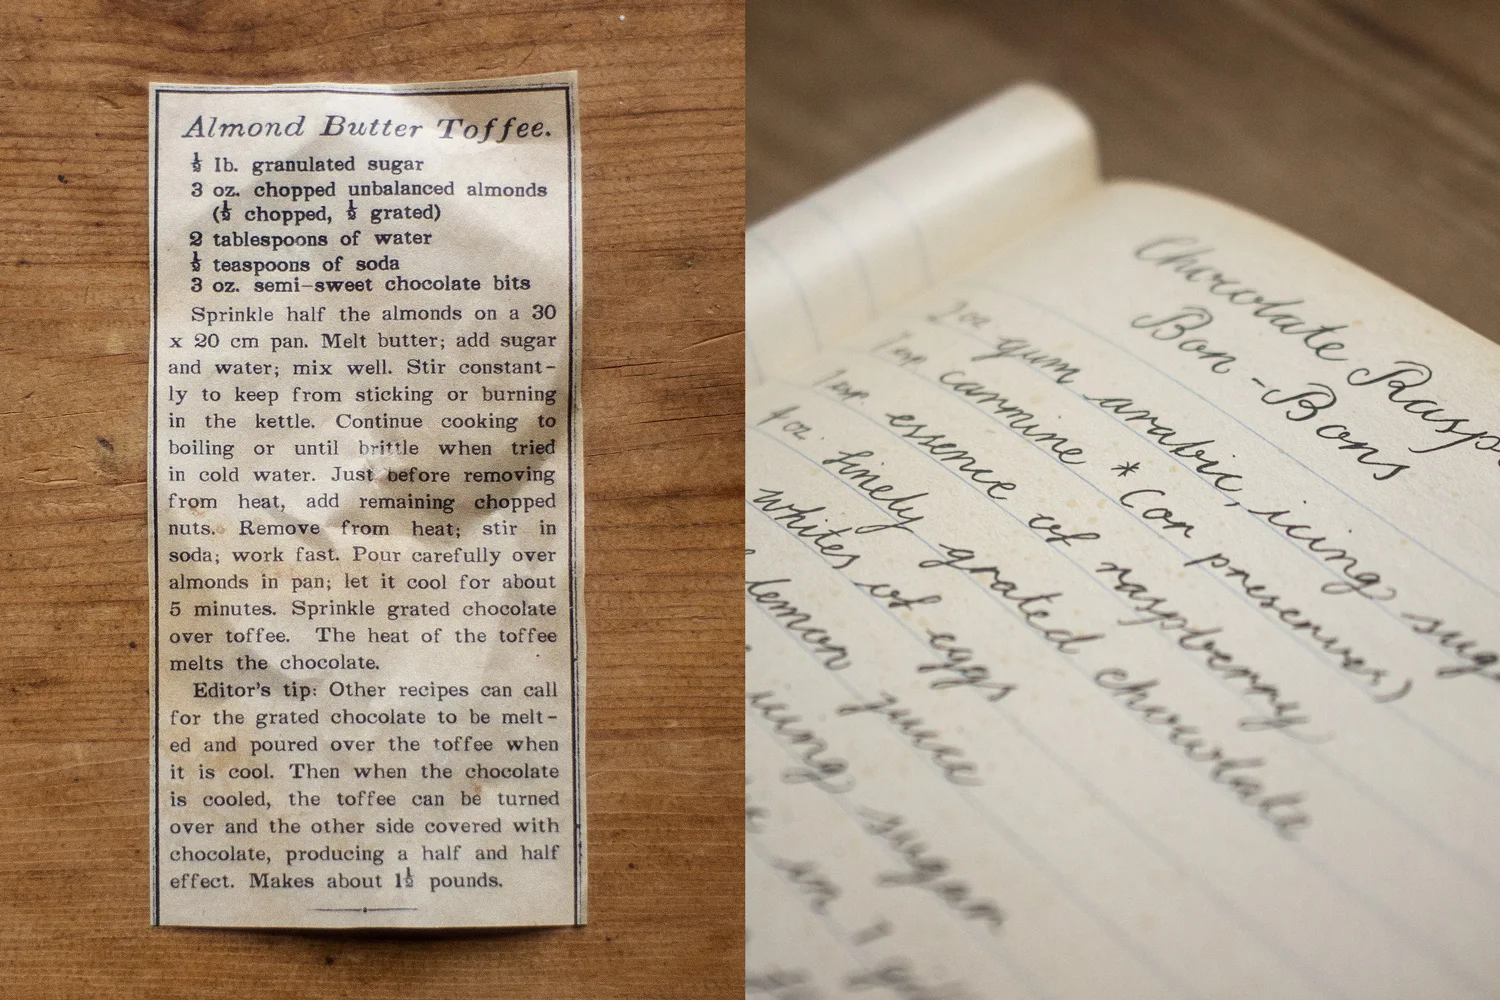 Almond Butter Toffee.
½ lb. granulated sugar
3 oz. chopped unbalanced almonds
(½ chopped, ½ grated)
2 tablespoons of water
½ teaspoons of soda
3 oz. semi-sweet chocolate bits
Sprinkle half the almonds on a 30
x 20 cm pan. Melt butter; add sugar
and water; mix well. Stir constant-
ly to keep from sticking or burning
in the kettle. Continue cooking to
boiling or until brittle when tried
in cold water. Just before removing
from heat, add remaining chopped
nuts. Remove from heat; stir in
soda; work fast. Pour carefully over
almonds in pan; let it cool for about
5 minutes. Sprinkle grated chocolate
over toffee. The heat of the toffee
melts the chocolate.
Editor's tip: Other recipes can call
for the grated chocolate to be melt-
ed and poured over the toffee when
it is cool. Then when the chocolate
is cooled, the toffee can be turned
over and the other side covered with
chocolate, producing a half and half
effect. Makes about 1½ pounds.
Chocolate Rasp
Bon-Bons
2 oz gum arabic, icing sug
carmine * (or preserves)
essence of raspberry
finely grated chocolate
whites of eggs
lemon juice
icing sugar
in